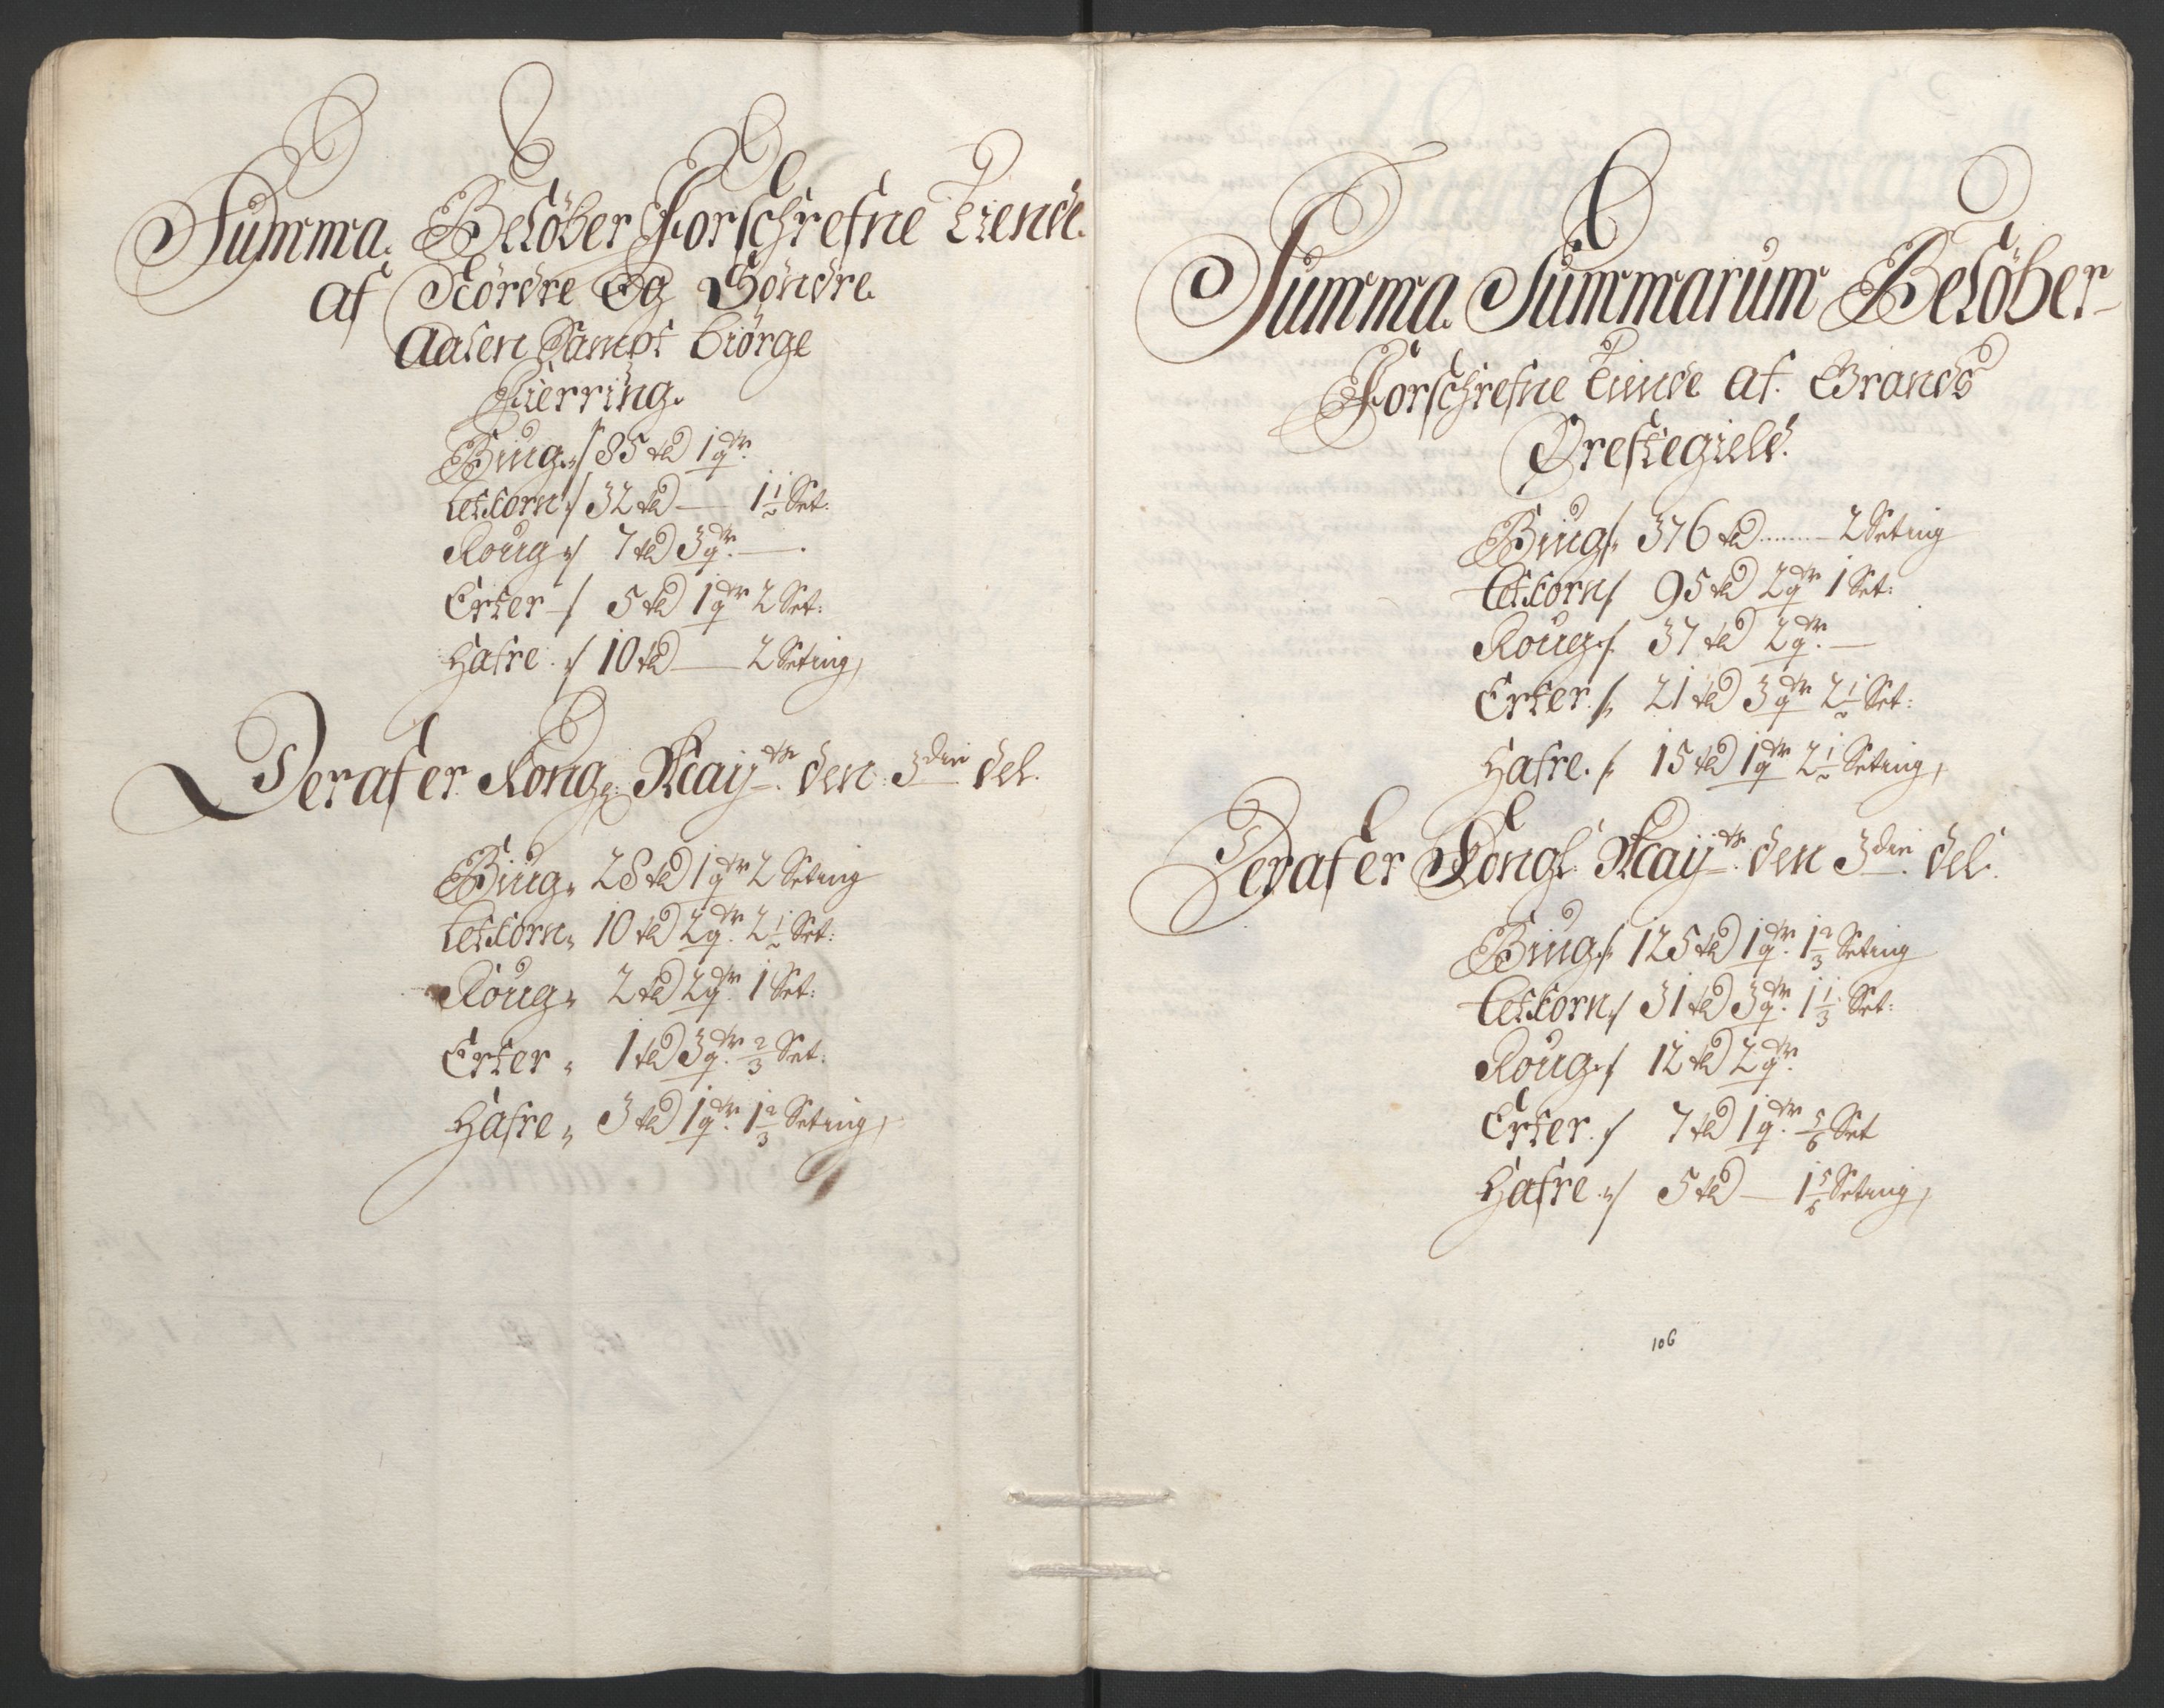 Summa. Belöber Forschrefne Tiende.
af Nördre Og Söndre.
Aalen Sampt Biörge
Fierring.
Biug // 85 td 1 qr.
Letkorn // 32 td — 1½ Set:
Roug // 7 td 3 qr. —.
Erter — / 5 td 1 qr 2 Set:
Hafre. // 10 td — 2 Seting,
Deraf er Kong: Mayts. den 3die del.
Biug „ 28 td 1 qr 2 Seting
Letkorn „ 10 td 2 qr. 2½ Set:
Roug „ 2 td 2 qr. 1 Set:
Erter „ 1 td 3 qr. 2/3 Set:
Hafre „ 3 td 1 qr. 1 2/3 Seting,
Summa Summarum Belöber
Forschrefne Tiende af. Grands
Prestegield.
Biug // 376 td ........ — 2 Seting
Letkorn / 95 td 2 qr 1 Set:
Roug / 37 td 2 qr. —
Erter. / 21 td 3 qr 2½ Set:
Hafre. / 15 td 1 qr 2½ Seting,
Deraf er Kongl. Mayts. den 3die. del.
Biug // 125 td 1 qr. 1 2/3 Seting
Letkorn // 31 td 3 qr. 1 1/3 Set:
Roug // 12 td 2 qr.
Erter. / 7 td 1 qr. 5/6 Set
Hafre // 5 td — 1 5/6 Seting,
106